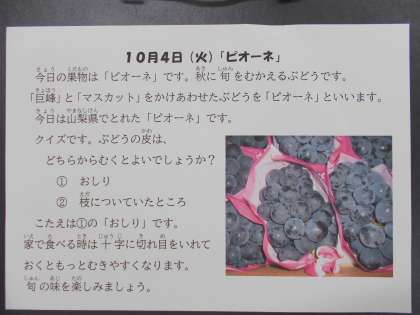 10月4日（火）「ピオーネ」
今日の果物は「ピオーネ」です。秋に旬をむかえるぶどうです。
「巨峰」と「マスカット」をかけあわせたぶどうを「ピオーネ」といいます。
今日は山梨県でとれた「ピオーネ」です。
クイズです。ぶどうの皮は、
どちらからむくとよいでしょうか？
① おしり
② 枝についていたところ
こたえは①の「おしり」です。
家で食べる時は十字に切れ目をいれて
おくともっとむきやすくなります。
旬の味を楽しみましょう。